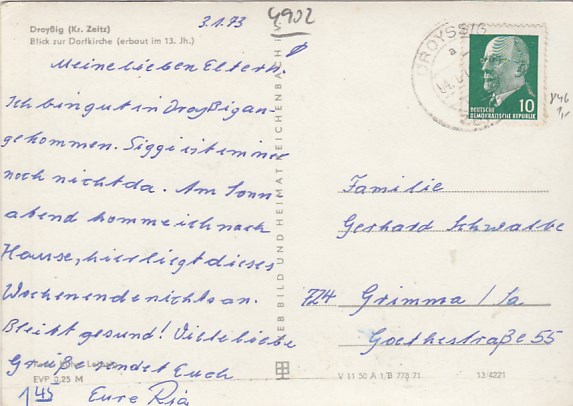 Droyßig (Kr. Zeitz)
Blick zur Dorfkirche (erbaut im 13. Jh.)
3.1.73
4902
Meine lieben Eltern.
Ich bin gut in Droyßig an-
gekommen. Siggi ist immer
noch nicht da. Am Sonn
abend komme ich nach
Hause, hier liegt dieses
Wochenende nichts an.
Bleibt gesund! Viele liebe
Grüße sendet Euch
Eure Ria
EVP 0,25 M
1 45
VEB BILD UND HEIMAT REICHENBACH I V
DROYSSIG
a
10
DEUTSCHE
DEMOKRATISCHE REPUBLIK
846
Familie
Gerhard Schwalbe
724 Grimma / Sa
Goethestraße 55
V 11 50 A 1/B 778/71
13/4221